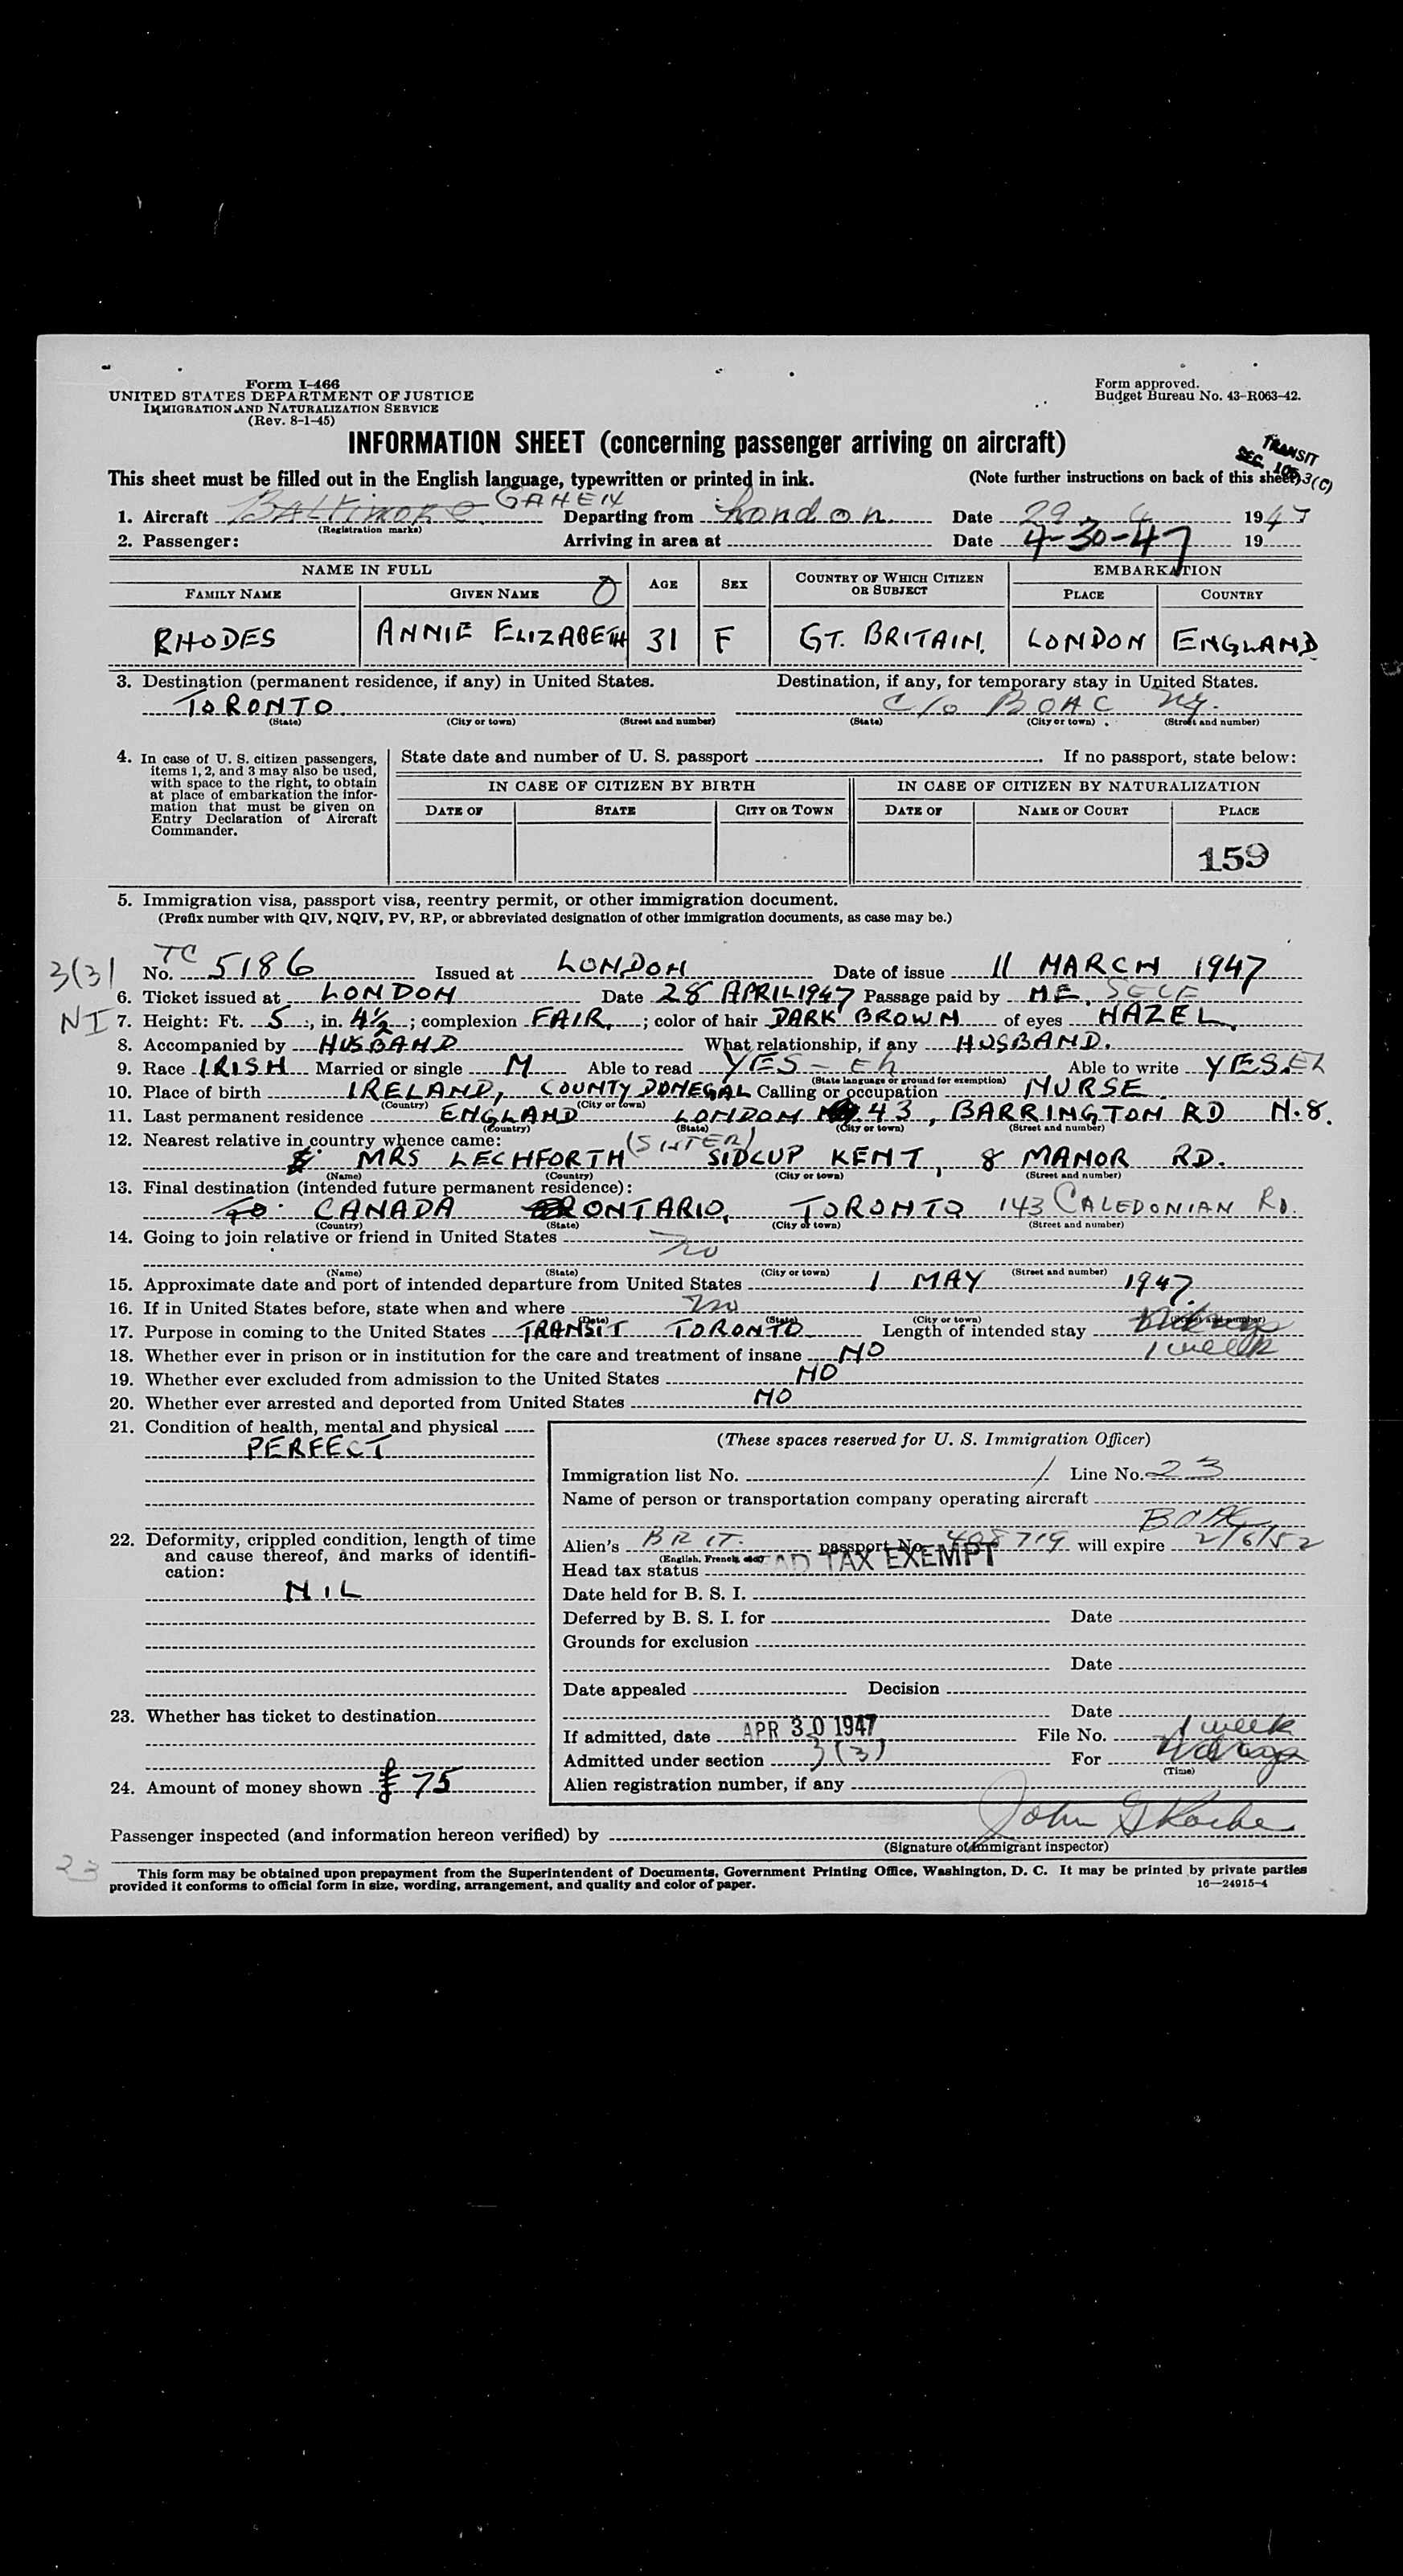 Form I-466
UNITED STATES DEPARTMENT OF JUSTICE
IMMIGRATION AND NATURALIZATION SERVICE
(Rev. 8-1-45)
Form approved.
Budget Bureau No. 43-R063-42.
INFORMATION SHEET (concerning passenger arriving on aircraft)
TRANSIT
SEC. 3(C)
This sheet must be filled out in the English language, typewritten or printed in ink. (Note further instructions on back of this sheet)
1. Aircraft Baltimore GAHEN Departing from London Date 29 4 1947
(Registration marks)
2. Passenger: Arriving in area at Date 4-30-47 19
NAME IN FULL AGE SEX COUNTRY OF WHICH CITIZEN OR SUBJECT EMBARKATION
FAMILY NAME GIVEN NAME PLACE COUNTRY
RHODES ANNIE ELIZABETH 31 F GT. BRITAIN. LONDON ENGLAND
3. Destination (permanent residence, if any) in United States. Destination, if any, for temporary stay in United States.
TORONTO c/o BOAC NY.
(State) (City or town) (Street and number) (State) (City or town) (Street and number)
4. In case of U. S. citizen passengers, items 1, 2, and 3 may also be used, with space to the right, to obtain at place of embarkation the information that must be given on Entry Declaration of Aircraft Commander.
State date and number of U. S. passport If no passport, state below:
IN CASE OF CITIZEN BY BIRTH IN CASE OF CITIZEN BY NATURALIZATION
DATE OF STATE CITY OR TOWN DATE OF NAME OF COURT PLACE
159
5. Immigration visa, passport visa, reentry permit, or other immigration document.
(Prefix number with QIV, NQIV, PV, RP, or abbreviated designation of other immigration documents, as case may be.)
3(3) No. TC 5186 Issued at LONDON Date of issue 11 MARCH 1947
6. Ticket issued at LONDON Date 28 APRIL 1947 Passage paid by ME. SELF
NI 7. Height: Ft. 5, in. 4½; complexion FAIR.; color of hair DARK BROWN of eyes HAZEL.
8. Accompanied by HUSBAND What relationship, if any HUSBAND.
9. Race IRISH Married or single M Able to read YES - Eh Able to write YES. Eh
(State language or ground for exemption)
10. Place of birth IRELAND, COUNTY DONEGAL Calling or occupation NURSE.
(Country) (City or town)
11. Last permanent residence ENGLAND LONDON 43, BARRINGTON RD N.8.
(Country) (State) (City or town) (Street and number)
12. Nearest relative in country whence came: (SISTER)
MRS LECHFORTH SIDCUP KENT, 8 MANOR RD.
(Name) (Country) (City or town) (Street and number)
13. Final destination (intended future permanent residence):
CANADA ONTARIO, TORONTO 143 CALEDONIAN RD.
(Country) (State) (City or town) (Street and number)
14. Going to join relative or friend in United States
no
(Name) (State) (City or town) (Street and number)
15. Approximate date and port of intended departure from United States 1 MAY 1947.
16. If in United States before, state when and where no
(Date) (State) (City or town) (Street and number)
17. Purpose in coming to the United States TRANSIT TORONTO Length of intended stay
1 week
18. Whether ever in prison or in institution for the care and treatment of insane NO
19. Whether ever excluded from admission to the United States NO
20. Whether ever arrested and deported from United States NO
21. Condition of health, mental and physical
PERFECT
22. Deformity, crippled condition, length of time and cause thereof, and marks of identification:
NIL
23. Whether has ticket to destination
24. Amount of money shown £ 75
(These spaces reserved for U. S. Immigration Officer)
Immigration list No. 1 Line No. 23
Name of person or transportation company operating aircraft
BOAC
Alien's BRIT. passport No. 408719 will expire 2/6/52
(English, French, etc.)
Head tax status HEAD TAX EXEMPT
Date held for B. S. I.
Deferred by B. S. I. for Date
Grounds for exclusion
Date
Date appealed Decision
Date
If admitted, date APR 30 1947 File No.
1 week
Admitted under section 3(3) For
(Time)
Alien registration number, if any
Passenger inspected (and information hereon verified) by John G Roche
(Signature of immigrant inspector)
23
This form may be obtained upon prepayment from the Superintendent of Documents, Government Printing Office, Washington, D. C. It may be printed by private parties
provided it conforms to official form in size, wording, arrangement, and quality and color of paper.
16—24915-4